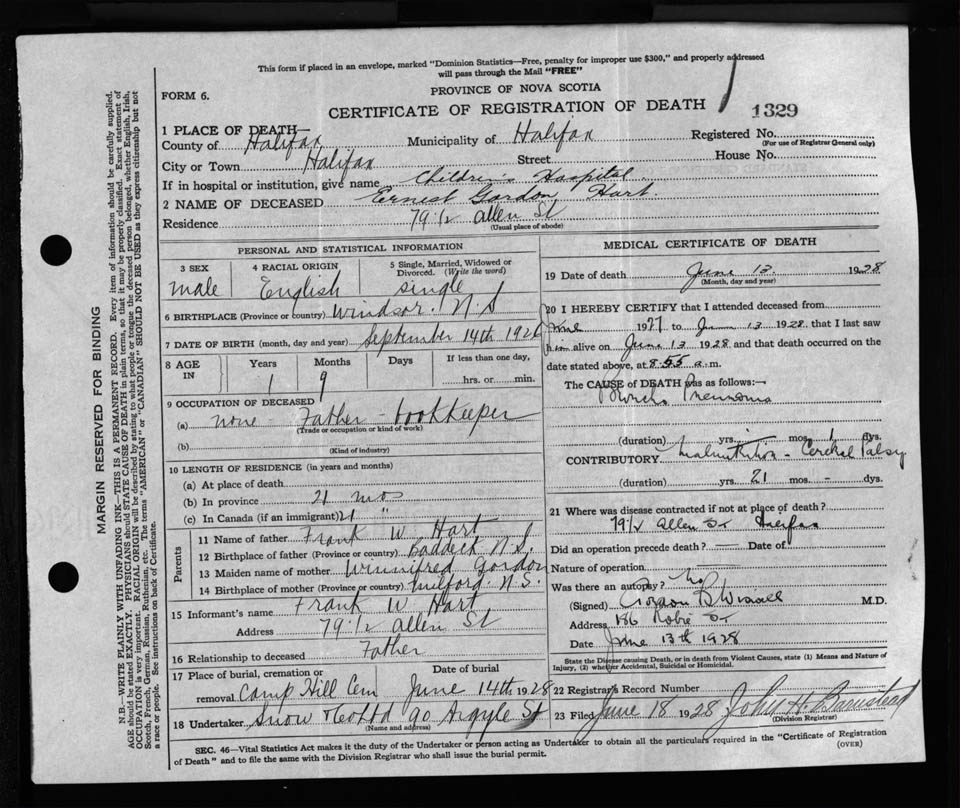 This form if placed in an envelope, marked "Dominion Statistics—Free, penalty for improper use $300," and properly addressed
will pass through the Mail "FREE"
PROVINCE OF NOVA SCOTIA
FORM 6.
CERTIFICATE OF REGISTRATION OF DEATH
1329
1 PLACE OF DEATH—
County of Halifax Municipality of Halifax Registered No.
(For use of Registrar General only)
City or Town Halifax Street House No.
If in hospital or institution, give name Children's Hospital
2 NAME OF DECEASED Ernest Gordon Hart
Residence 79 1/2 Allen St
(Usual place of abode)
PERSONAL AND STATISTICAL INFORMATION
3 SEX male
4 RACIAL ORIGIN English
5 Single, Married, Widowed or Divorced. (Write the word) single
6 BIRTHPLACE (Province or country) Windsor. N.S
7 DATE OF BIRTH (month, day and year) September 14th 1926
8 AGE IN Years Months Days If less than one day,
1 9 hrs. or min.
9 OCCUPATION OF DECEASED
(a) none - Father - bookkeeper
(Trade or occupation or kind of work)
(b)
(Kind of industry)
10 LENGTH OF RESIDENCE (in years and months)
(a) At place of death
(b) In province 21 mos
(c) In Canada (if an immigrant) 21 "
Parents
11 Name of father Frank W Hart
12 Birthplace of father (Province or country) Baddeck N.S.
13 Maiden name of mother Winnifred Gordon
14 Birthplace of mother (Province or country) Milford N.S.
15 Informant's name Frank W Hart
Address 79 1/2 Allen St
16 Relationship to deceased Father
17 Place of burial, cremation or removal Camp Hill Cem
Date of burial June 14th 1928
18 Undertaker Snow & Co Ltd 90 Argyle St
(Name and address)
MEDICAL CERTIFICATE OF DEATH
19 Date of death June 13. 1928
(Month, day and year)
20 I HEREBY CERTIFY that I attended deceased from
June 1927 to June 13 1928 that I last saw
him alive on June 13 1928 and that death occurred on the
date stated above, at 8.55 a.m.
The CAUSE of DEATH was as follows:—
Broncho Pneumonia
(duration) yrs. mos. 1 dys.
CONTRIBUTORY Malnutrition - Cerebral Palsy
(duration) yrs. 21 mos. - dys.
21 Where was disease contracted if not at place of death?
79 1/2 Allen St Halifax
Did an operation precede death? — Date of
Nature of operation —
Was there an autopsy? No
(Signed) Gordon B Wiswell M.D.
Address 186 Robie St
Date June 13th 1928
State the Disease causing Death, or in death from Violent Causes, state (1) Means and Nature of
Injury, (2) whether Accidental, Suicidal or Homicidal.
22 Registrar's Record Number
23 Filed June 18 1928 John H. Barnstead
(Division Registrar)
SEC. 46—Vital Statistics Act makes it the duty of the Undertaker or person acting as Undertaker to obtain all the particulars required in the "Certificate of Registration
of Death" and to file the same with the Division Registrar who shall issue the burial permit.
(OVER)
MARGIN RESERVED FOR BINDING
N.B.—WRITE PLAINLY WITH UNFADING INK—THIS IS A PERMANENT RECORD. Every item of information should be carefully supplied.
AGE should be stated EXACTLY. PHYSICIANS should STATE CAUSE OF DEATH in plain terms, so that it may be properly classified. Exact statement of
OCCUPATION is very important. RACIAL ORIGIN will be described by stating to what people or tongue the deceased person belonged, whether English, Irish,
Scotch, French, German, Russian, Ruthenian, etc. The terms "AMERICAN" or "CANADIAN" SHOULD NOT BE USED as they express citizenship but not
a race or people. See instructions on back of Certificate.